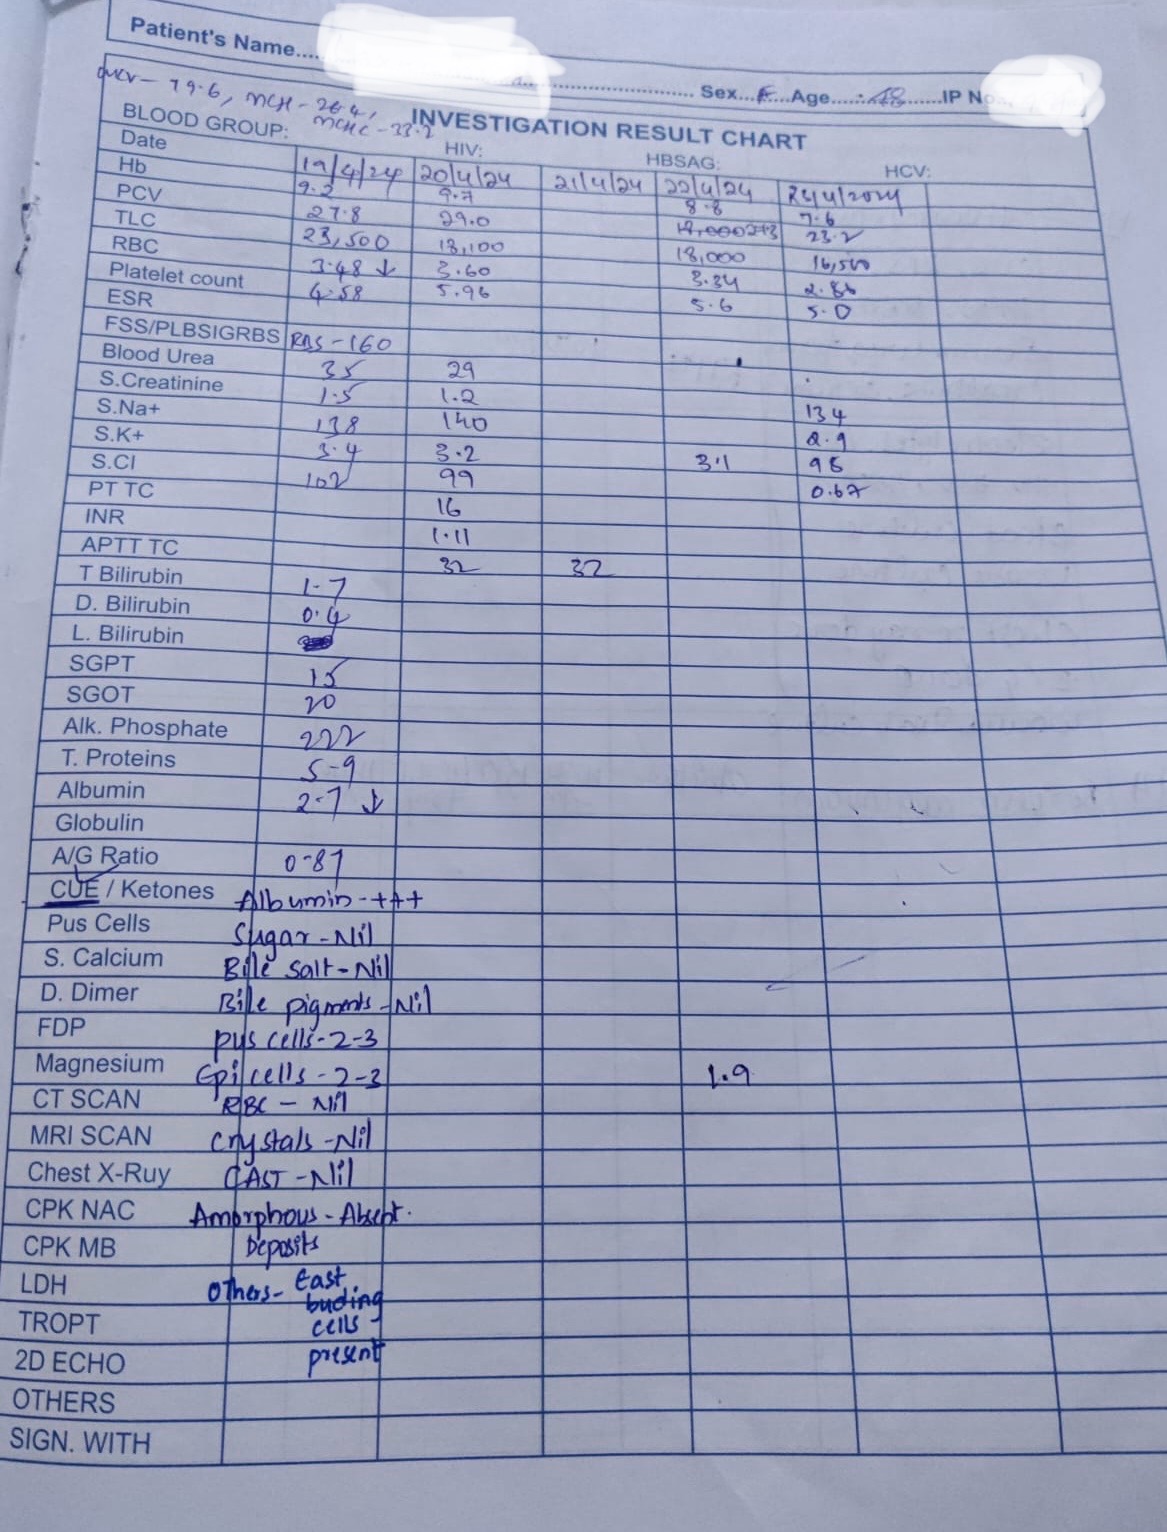 Patient's Name....
Sex...F....Age.......48......IP No.
mcv- 79.6, MCH-26.4,
MCHC-33.2
INVESTIGATION RESULT CHART
BLOOD GROUP: HIV: HBSAG: HCV:
Date 19/4/24 20/4/24 21/4/24 22/4/24
Hb 9.2 9.7 8.8 7.6
PCV 27.8 29.0 23.2
TLC 23,500 18,100 18,000 16,500
RBC 3.48 ↓ 3.60 3.34
Platelet count 4.58 5.96 5.6 5.0
ESR
FSS/PLBSIGRBS RBS-160
Blood Urea 35 29
S.Creatinine 1.5 1.2
S.Na+ 138 140 134
S.K+ 3.4 3.2 3.1 2.9
S.CI 102 99 98
PT TC 16 0.67
INR 1.11
APTT TC 32 32
T Bilirubin 1.7
D. Bilirubin 0.4
L. Bilirubin
SGPT 15
SGOT 20
Alk. Phosphate 222
T. Proteins 5.9
Albumin 2.7 ↓
Globulin
A/G Ratio 0.87
CUE / Ketones Albumin-+++
Pus Cells Sugar-Nil
S. Calcium Bile salt-Nil
D. Dimer Bile pigments-Nil
FDP pus cells-2-3
Magnesium Epi cells-2-3 1.9
CT SCAN RBC - Nil
MRI SCAN Crystals-Nil
Chest X-Ruy CAST-Nil
CPK NAC Amorphous-Absent.
CPK MB Deposits
LDH Others- East
buding
TROPT cells-
2D ECHO present
OTHERS
SIGN. WITH